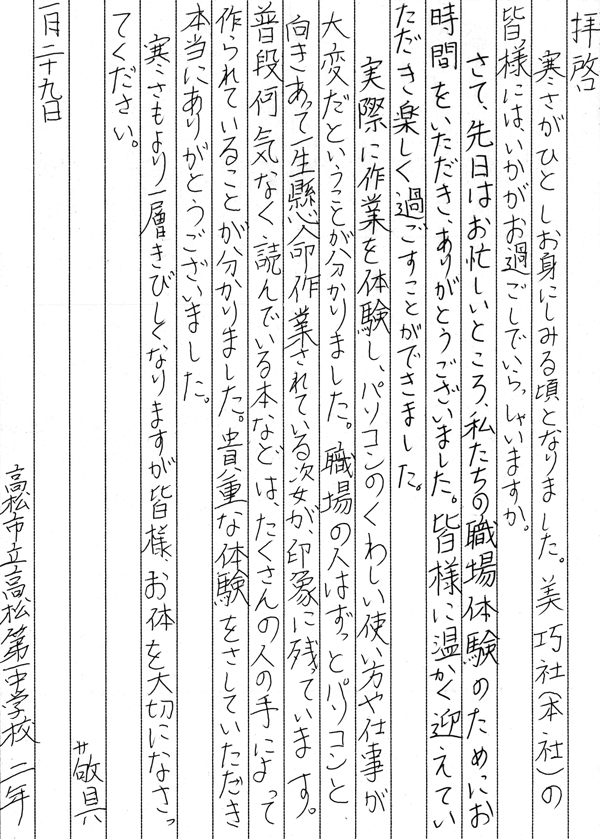 拝啓
寒さがひとしお身にしみる頃となりました。美巧社(本社)の
皆様には、いかがお過ごしでいらっしゃいますか。
さて、先日はお忙しいところ、私たちの職場体験のためにお
時間をいただき、ありがとうございました。皆様に温かく迎えてい
ただき楽しく過ごすことができました。
実際に作業を体験し、パソコンのくわしい使い方や仕事が
大変だということが分かりました。職場の人はずっとパソコンと
向きあって一生懸命作業されている姿が、印象に残っています。
普段何気なく読んでいる本などは、たくさんの人の手によって
作られていることが分かりました。貴重な体験をさしていただき
本当にありがとうございました。
寒さもより一層きびしくなりますが皆様、お体を大切になさっ
てください。
敬具
一月二十九日
高松市立高松第一中学校 二年